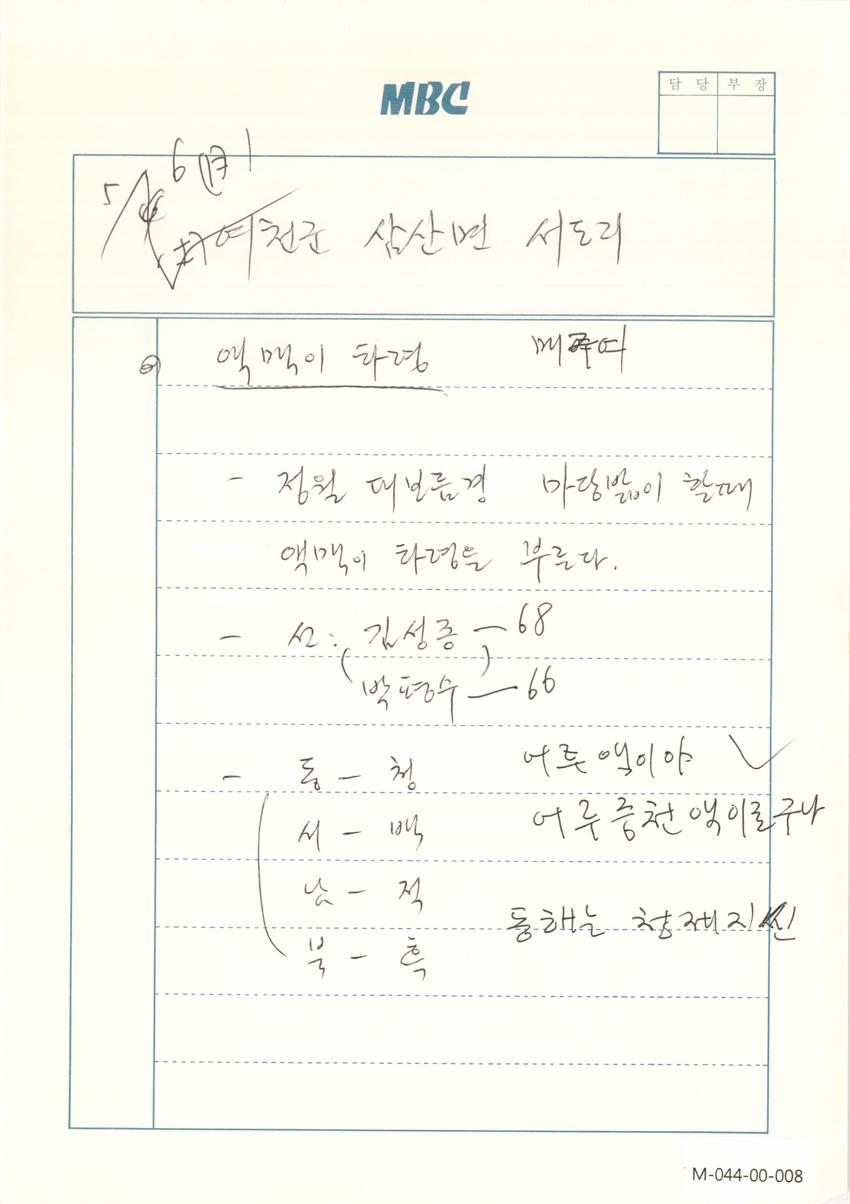 MBC
담당 부장
5/6 (月)
여천군 삼산면 서도리
액맥이 타령
- 정월 대보름경 마당밟이 할때
액맥이 타령을 부른다.
- 선: 김성종 - 68
(박평수) - 66
- 동 - 청 어루액이야
서 - 백 어루중천액이로구나
남 - 적
동해는 청제지신
북 - 흑
M-044-00-008